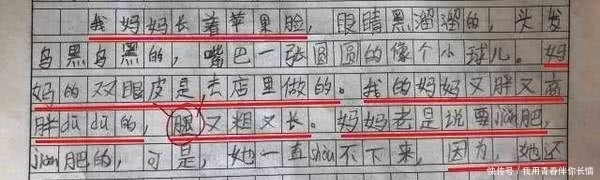 我妈妈长着苹果脸，眼睛黑溜溜的，头发
乌黑乌黑的，嘴巴一张圆圆的像个小球儿。妈
妈的双眼皮是去店里做的。我的妈妈又胖又高
胖dū dū的，腿又粗又长。妈妈老是说要jiǎn肥，
jiǎn肥的，可是，她一直shòu不下来，因为，她还
快传号/我用青春伴你长情